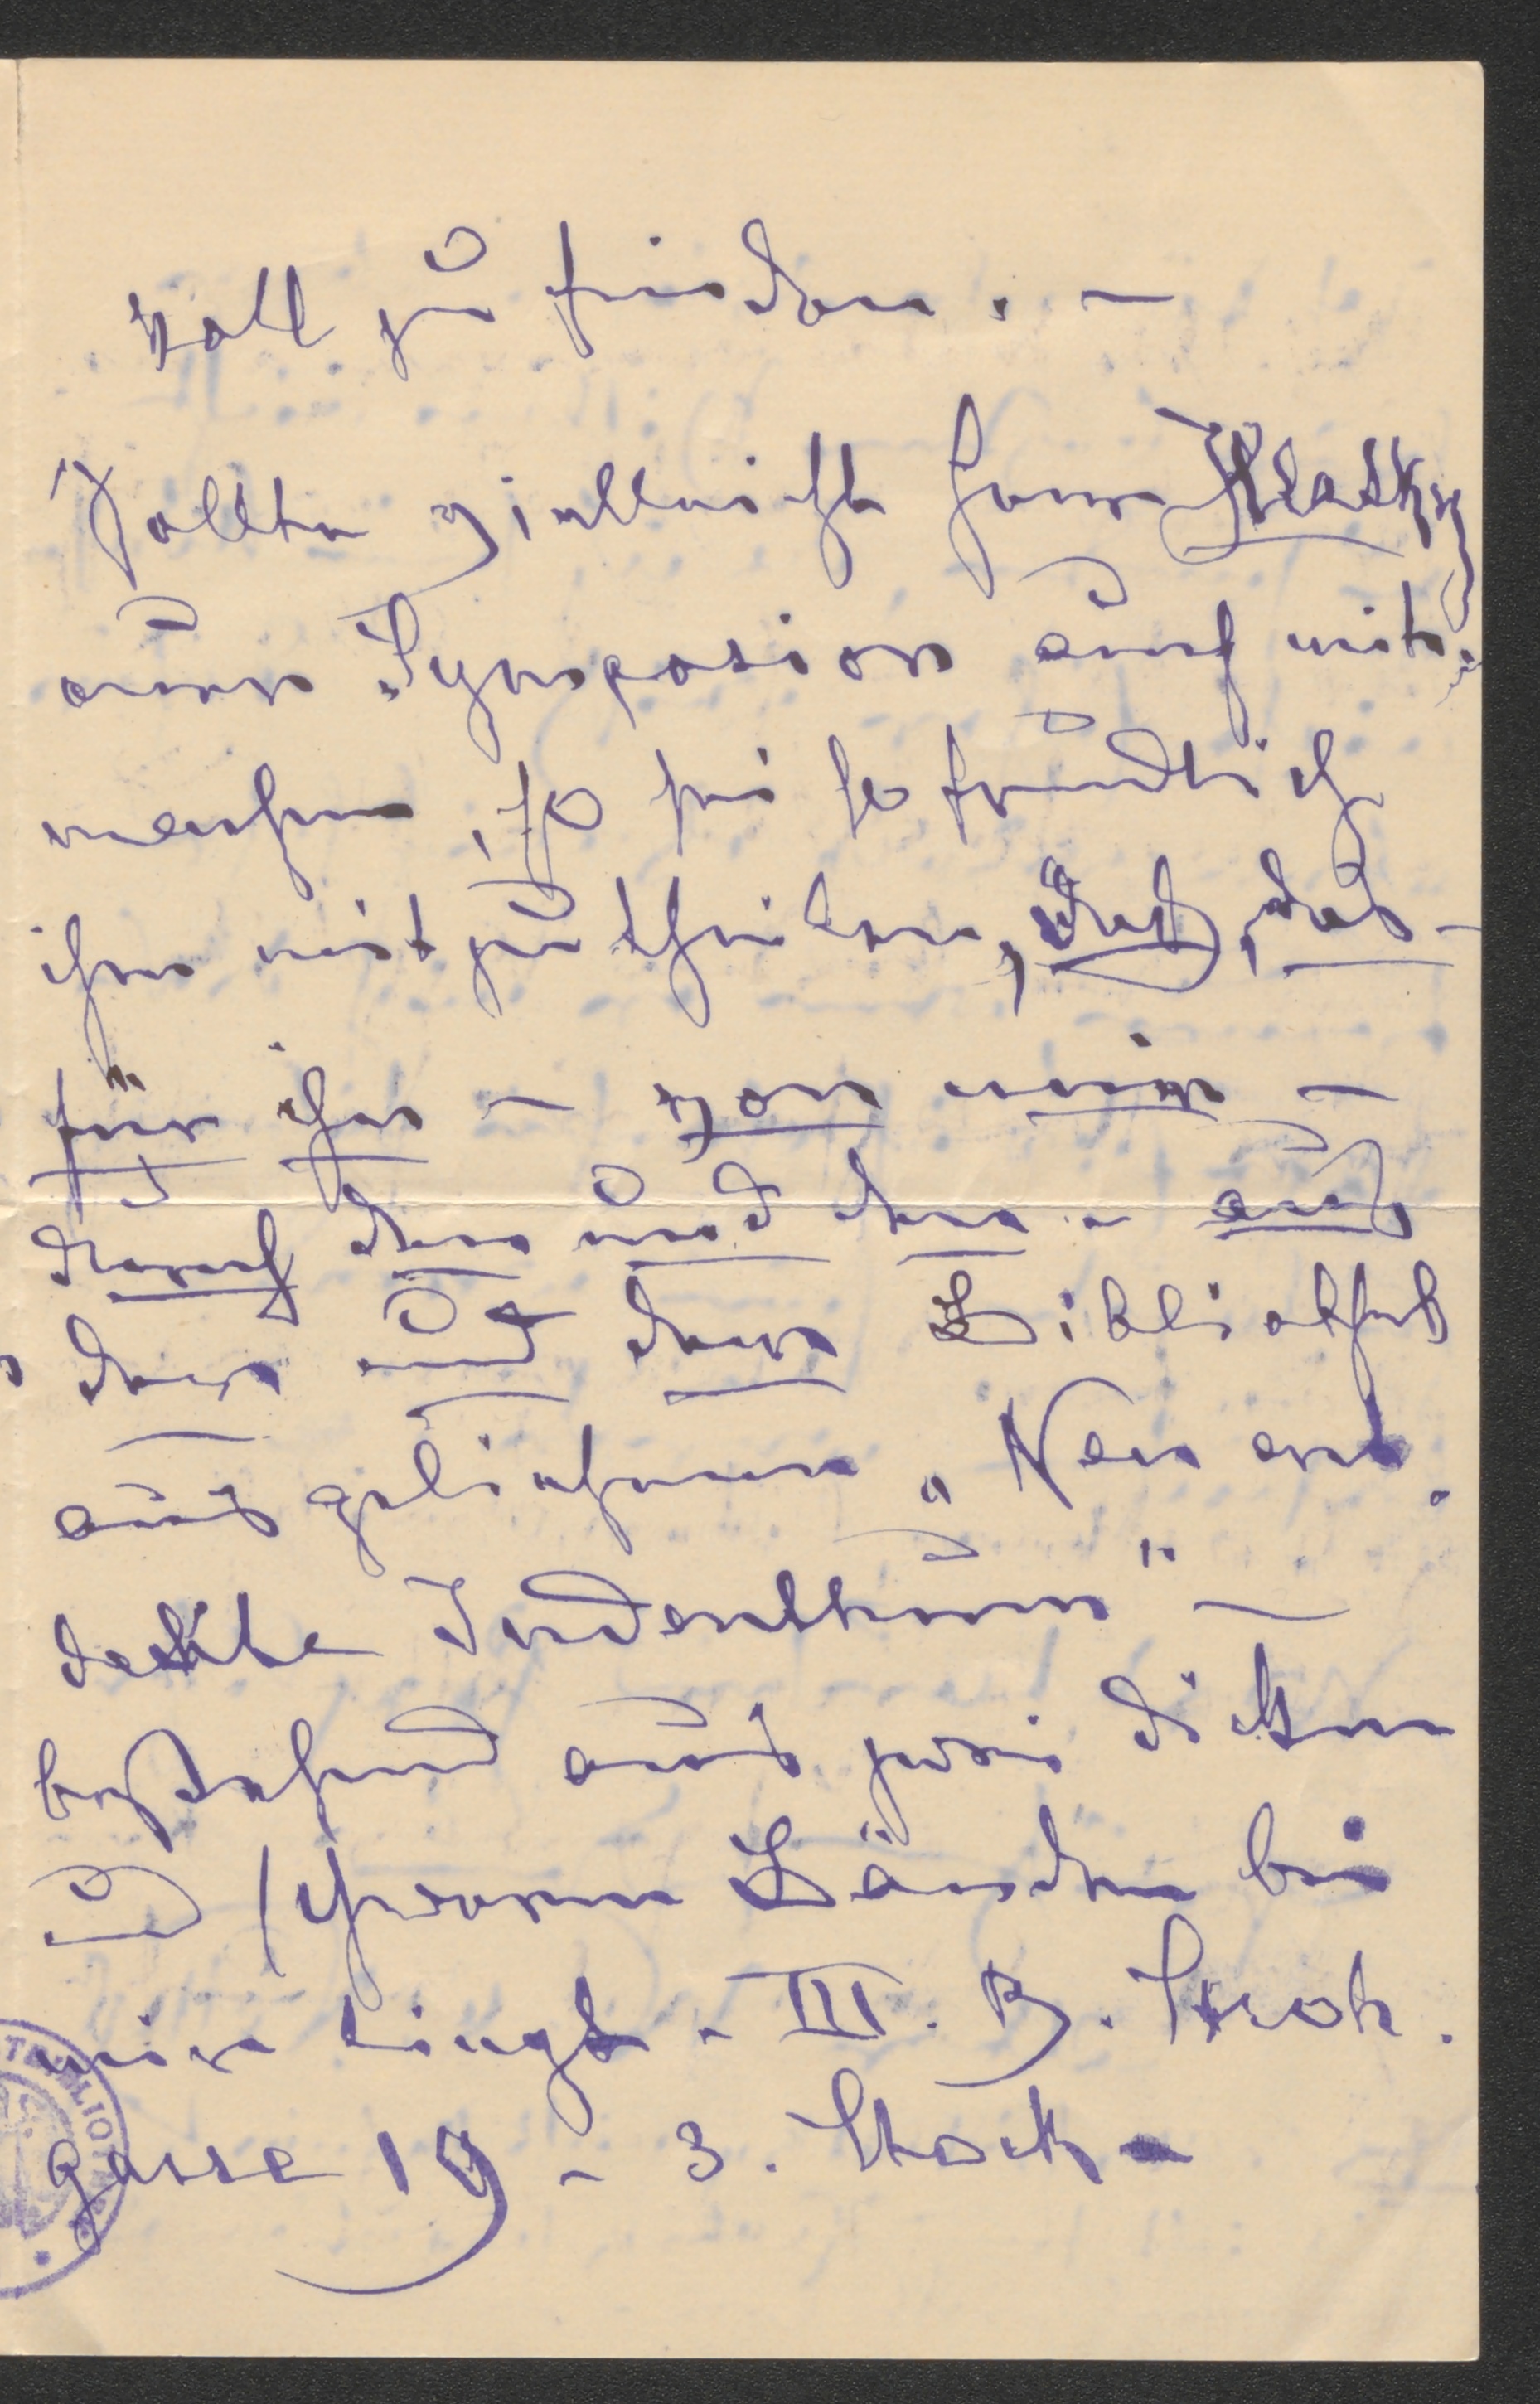 voll zu finden. –
Sollte vielleicht Herr Klastky
am Symposion auch mit-
machen, so sei so freundlich
ihm mitzutheilen, daß das –
für ihn – von mir –
durch den und den – aus
der und der Bibliothek
ausgeliehene „Neu ent-
deckte Judenthum" –
bestehend aus zwei dicken
und schweren Bänden bei
mir liegt – III. B.
gasse 19 – 3. Stock –